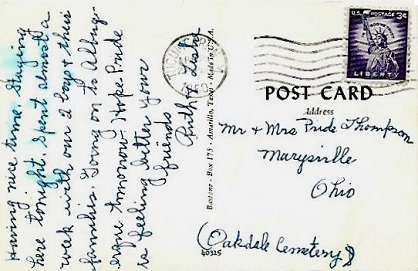 Having nice time. Staying
here tonight. Spent almost a
week with our 2 boys & their
families. Going on to Albuq-
erque tomorrow. Hope Pride
is feeling better. Your
friends
Ruth & Leslie
Baxtone - Box 175 - Amarillo, Texas - Made in U.S.A.
U.S. POSTAGE 3¢
LIBERTY
POST CARD
Address
Mr & Mrs Pride Thompson
Marysville
Ohio
(Oakdale Cemetery)
40315